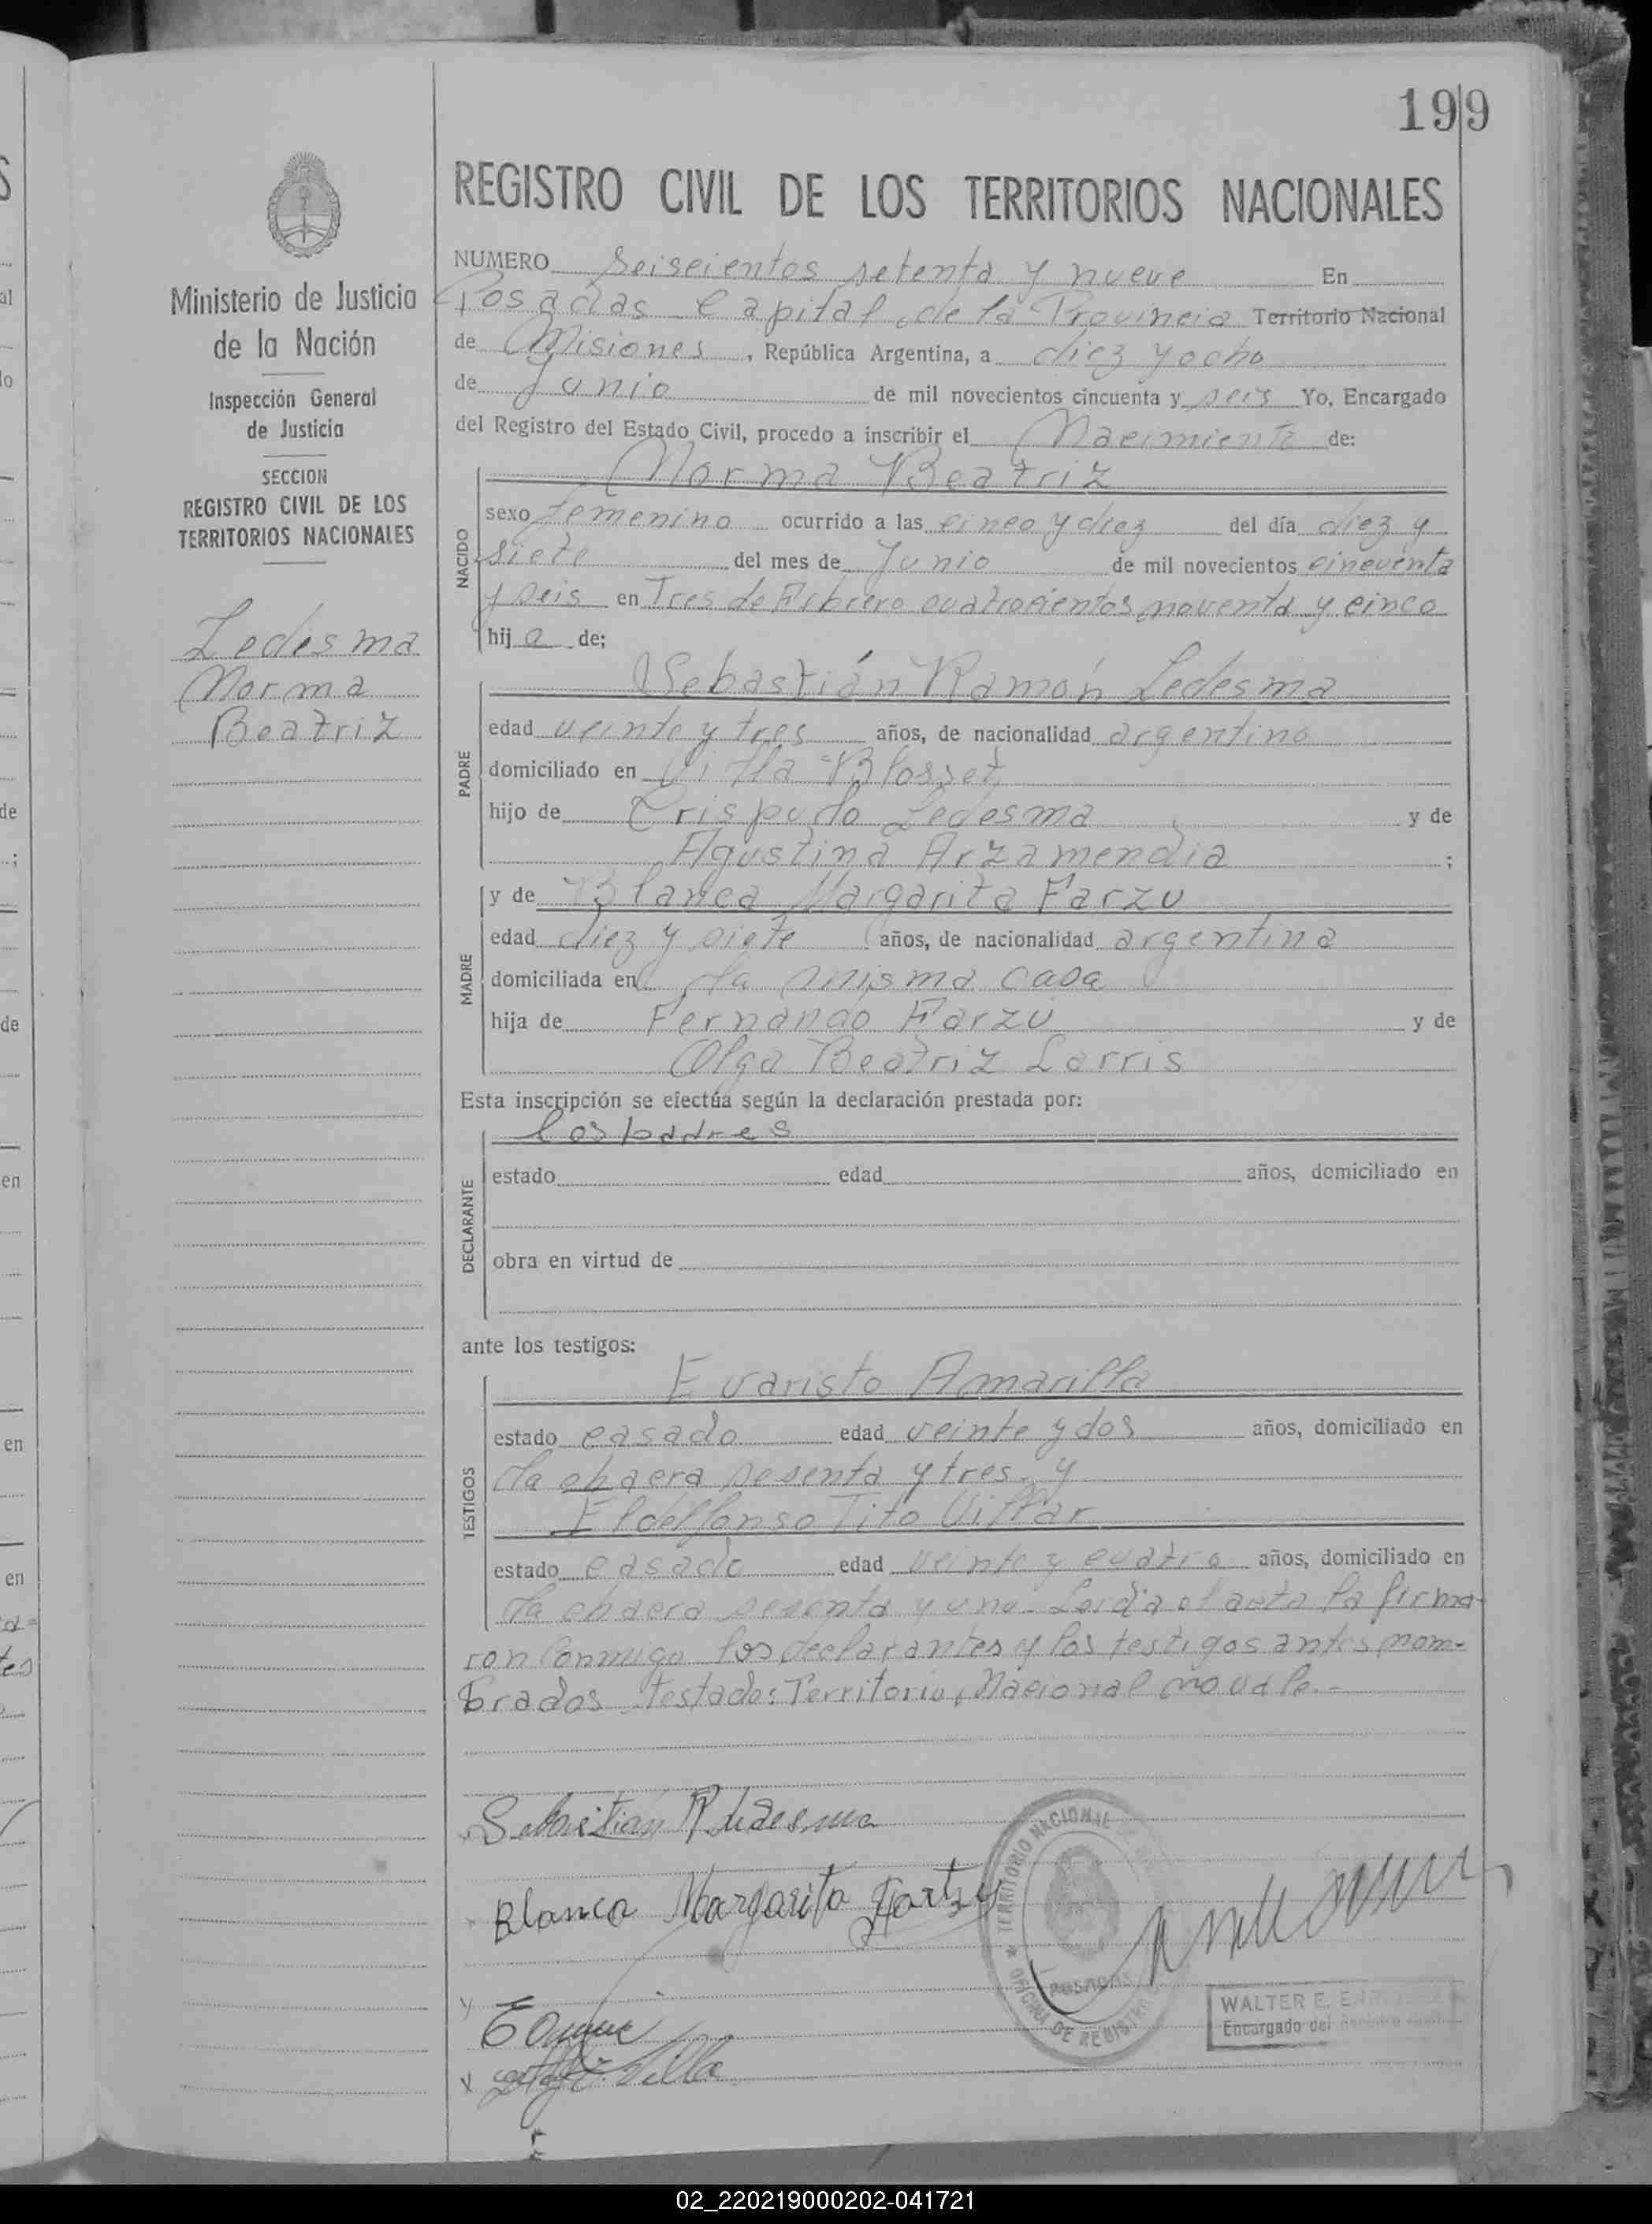 199
REGISTRO CIVIL DE LOS TERRITORIOS NACIONALES
Ministerio de Justicia
de la Nación
Inspección General
de Justicia
SECCION
REGISTRO CIVIL DE LOS
TERRITORIOS NACIONALES
Ledesma
Norma
Beatriz
NUMERO Seiscientos setenta y nueve En
Posadas Capital de la Provincia Territorio Nacional
de Misiones, República Argentina, a diez y ocho
de Junio de mil novecientos cincuenta y seis Yo, Encargado
del Registro del Estado Civil, procedo a inscribir el Nacimiento de:
NACIDO
Norma Beatriz
sexo femenino ocurrido a las cinco y diez del día diez y
siete del mes de Junio de mil novecientos cincuenta
y seis en Tres de Febrero cuatrocientos noventa y cinco
hija de;
PADRE
Sebastián Ramón Ledesma
edad veinte y tres años, de nacionalidad argentino
domiciliado en Villa Blosset
hijo de Crispulo Ledesma y de
Agustina Arzamendia ;
MADRE
y de Blanca Margarita Farzu
edad diez y siete años, de nacionalidad argentina
domiciliada en la misma casa
hija de Fernando Farzu y de
Olga Beatriz Larris
Esta inscripción se efectúa según la declaración prestada por:
DECLARANTE
los padres
estado edad años, domiciliado en
obra en virtud de
ante los testigos:
TESTIGOS
Evaristo Amarilla
estado casado edad veinte y dos años, domiciliado en
la chacra sesenta y tres y
Eldelfonso Tito Villar
estado casado edad veinte y cuatro años, domiciliado en
la chacra sesenta y uno. Leída el acta la firma-
ron conmigo los declarantes y los testigos antes nom-
brados Testado: Territorio Nacional no vale.-
Sebastián R Ledesma
Blanca Margarita Fartzu
TERRITORIO NACIONAL
POSADAS
OFICINA DE REGISTRO
WALTER E.
Encargado del
02_220219000202-041721